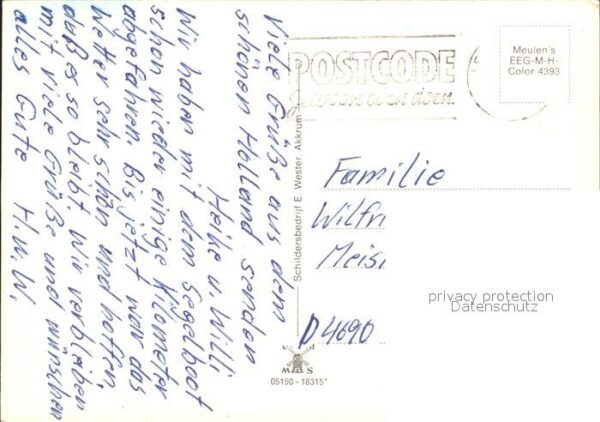 Viele Grüße aus dem
schönen Holland senden
Heike u. Willi
Wir haben mit dem Segelboot
schon wieder einige Kilometer
abgefahren. Bis jetzt war das
Wetter sehr schön und hoffen,
daß es so bleibt. Wir verbleiben
mit viele Grüße und wünschen
alles Gute H.u.W.
POSTCODE
gewoon even doen.
Meulen's
EEG-M-H-
Color 4393
Schildersbedrijf E. Wester, Akkrum
Familie
Wilfri
Meis
D 4690
privacy protection
Datenschutz
M S
05150 - 18315*